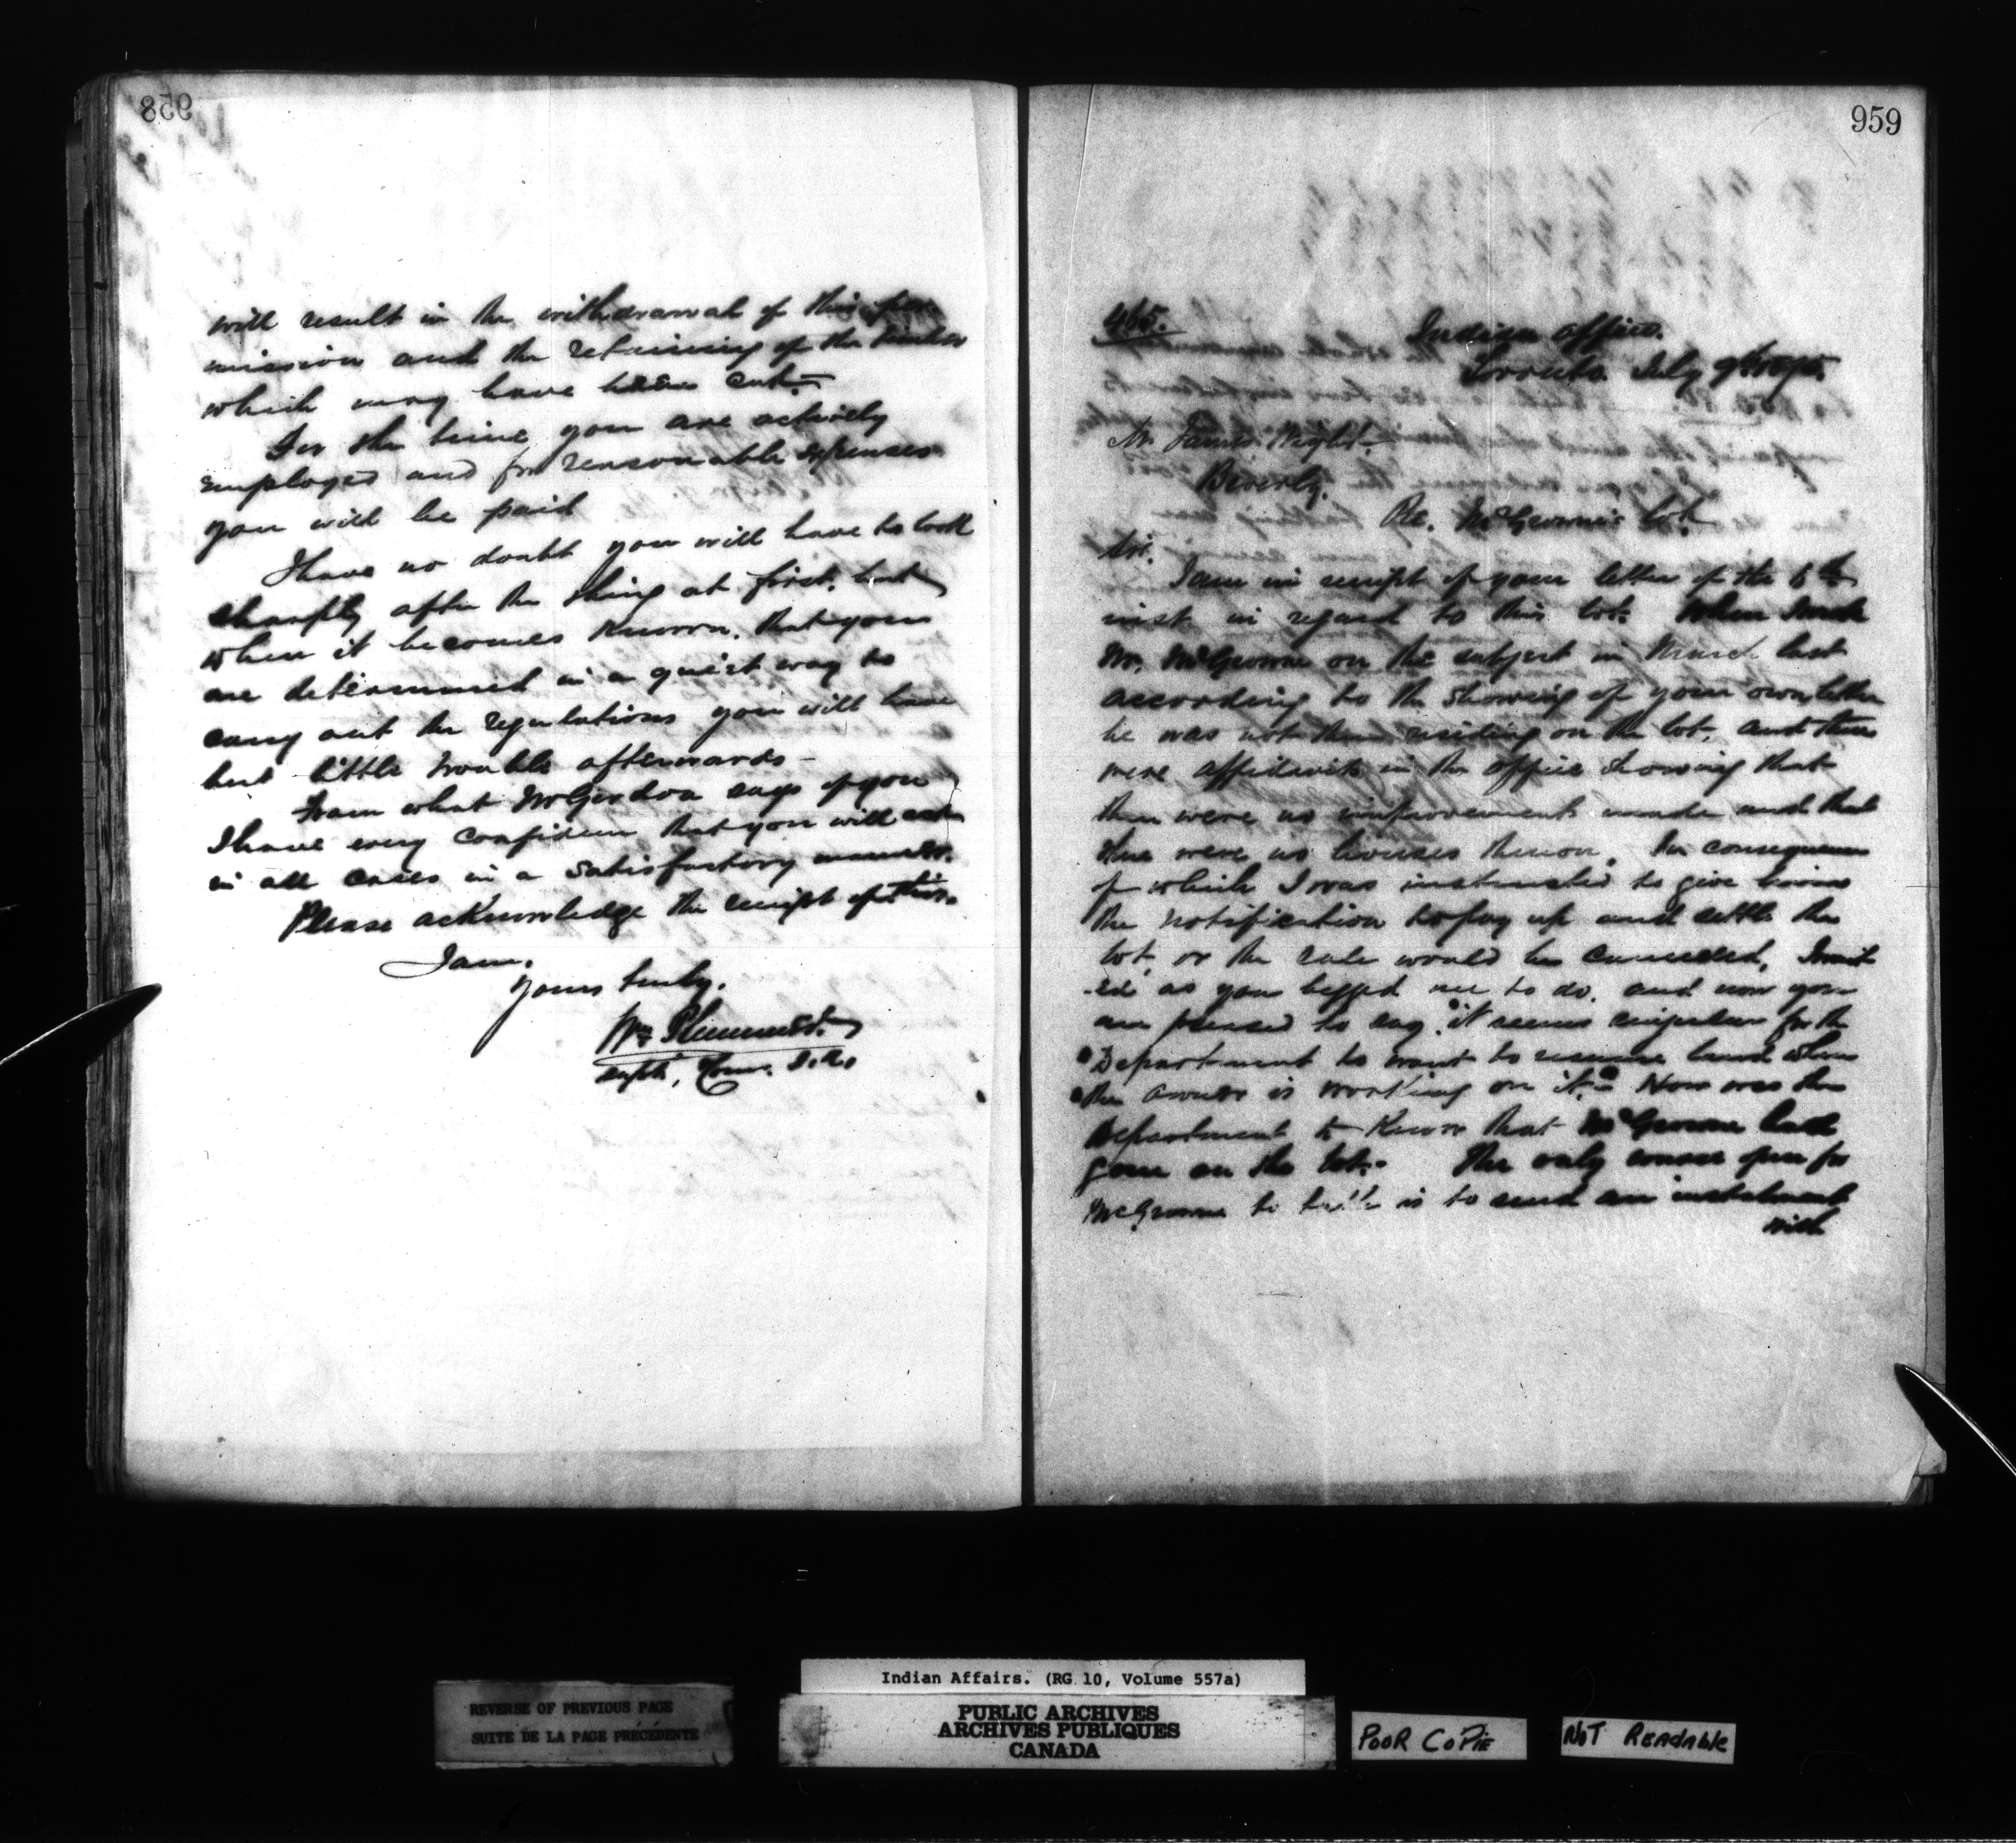 958
will result in the withdrawal of this per
mission and the retaining of the timber
which may have been cut.
For the time you are actively
employed and for reasonable expenses
you will be paid
I have no doubt you will have to look
sharply after the thing at first, but
when it becomes known, that you
are determined in a quiet way to
carry out the regulations you will have
but little trouble afterwards-
From what Mr Gordon says of you
I have every confidence that you will act
in all cases in a satisfactory manner.
Please acknowledge the receipt of this.
I am,
Yours truly,
Wm Plummer
Supt, Comr. I.A.
959
465.
Indian Office.
Toronto. July 9th
Mr James Wight.
Beverly.
Re. McGeowne's lot.
Sir.
I am in receipt of your letter of the 6th
inst in regard to this lot. When I wrote
Mr. McGeowne on the subject in March last
according to the showing of your own letter
he was not then residing on the lot, and there
were affidavits in the office showing that
there were no improvements made and that
there were no houses thereon. In consequence
of which I was instructed to give him
the notification to pay up and settle the
lot, or the sale would be cancelled, I wait
-ed as you begged me to do. and now you
are pleased to say "it seems singular for the
"Department to want to resume land when
"the owner is working on it." How was the
Department to know that McGeowne had
gone on the lot. The only course open for
McGeowne to take is to send an instalment
with
REVERSE OF PREVIOUS PAGE
SUITE DE LA PAGE PRÉCÉDENTE
Indian Affairs. (RG 10, Volume 557a)
PUBLIC ARCHIVES
ARCHIVES PUBLIQUES
CANADA
POOR COPIE
NOT READABLE